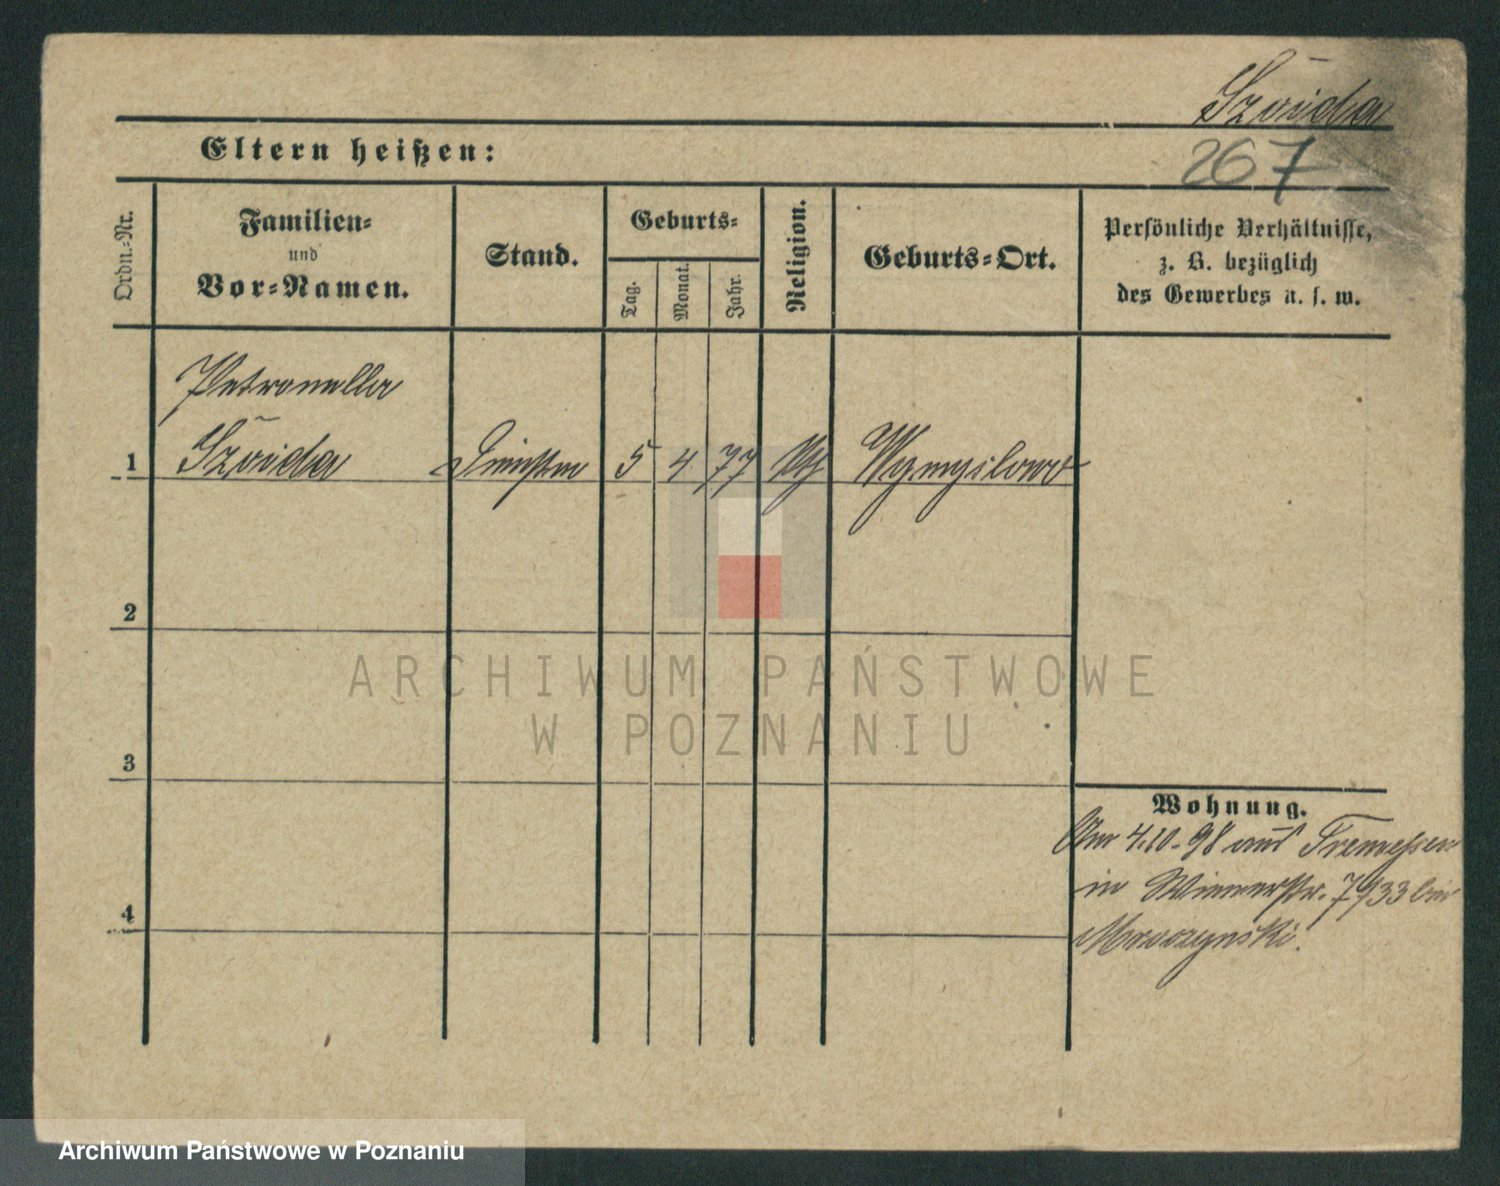 Szuida
267
Eltern heißen:
Ordn.-Nr.
Familien-
und
Vor-Namen.
Stand.
Geburts-
Tag.
Monat.
Jahr.
Religion.
Geburts-Ort.
Persönliche Verhältnisse,
z. B. bezüglich
des Gewerbes u. s. w.
Petronella
1 Szuida 5 4 77 Wymyslowo
2
3
4
Wohnung.
Am 4.10.98 aus Tremessen
in Wienerstr. 7/33 bei
ARCHIWUM PAŃSTWOWE
W POZNANIU
Archiwum Państwowe w Poznaniu